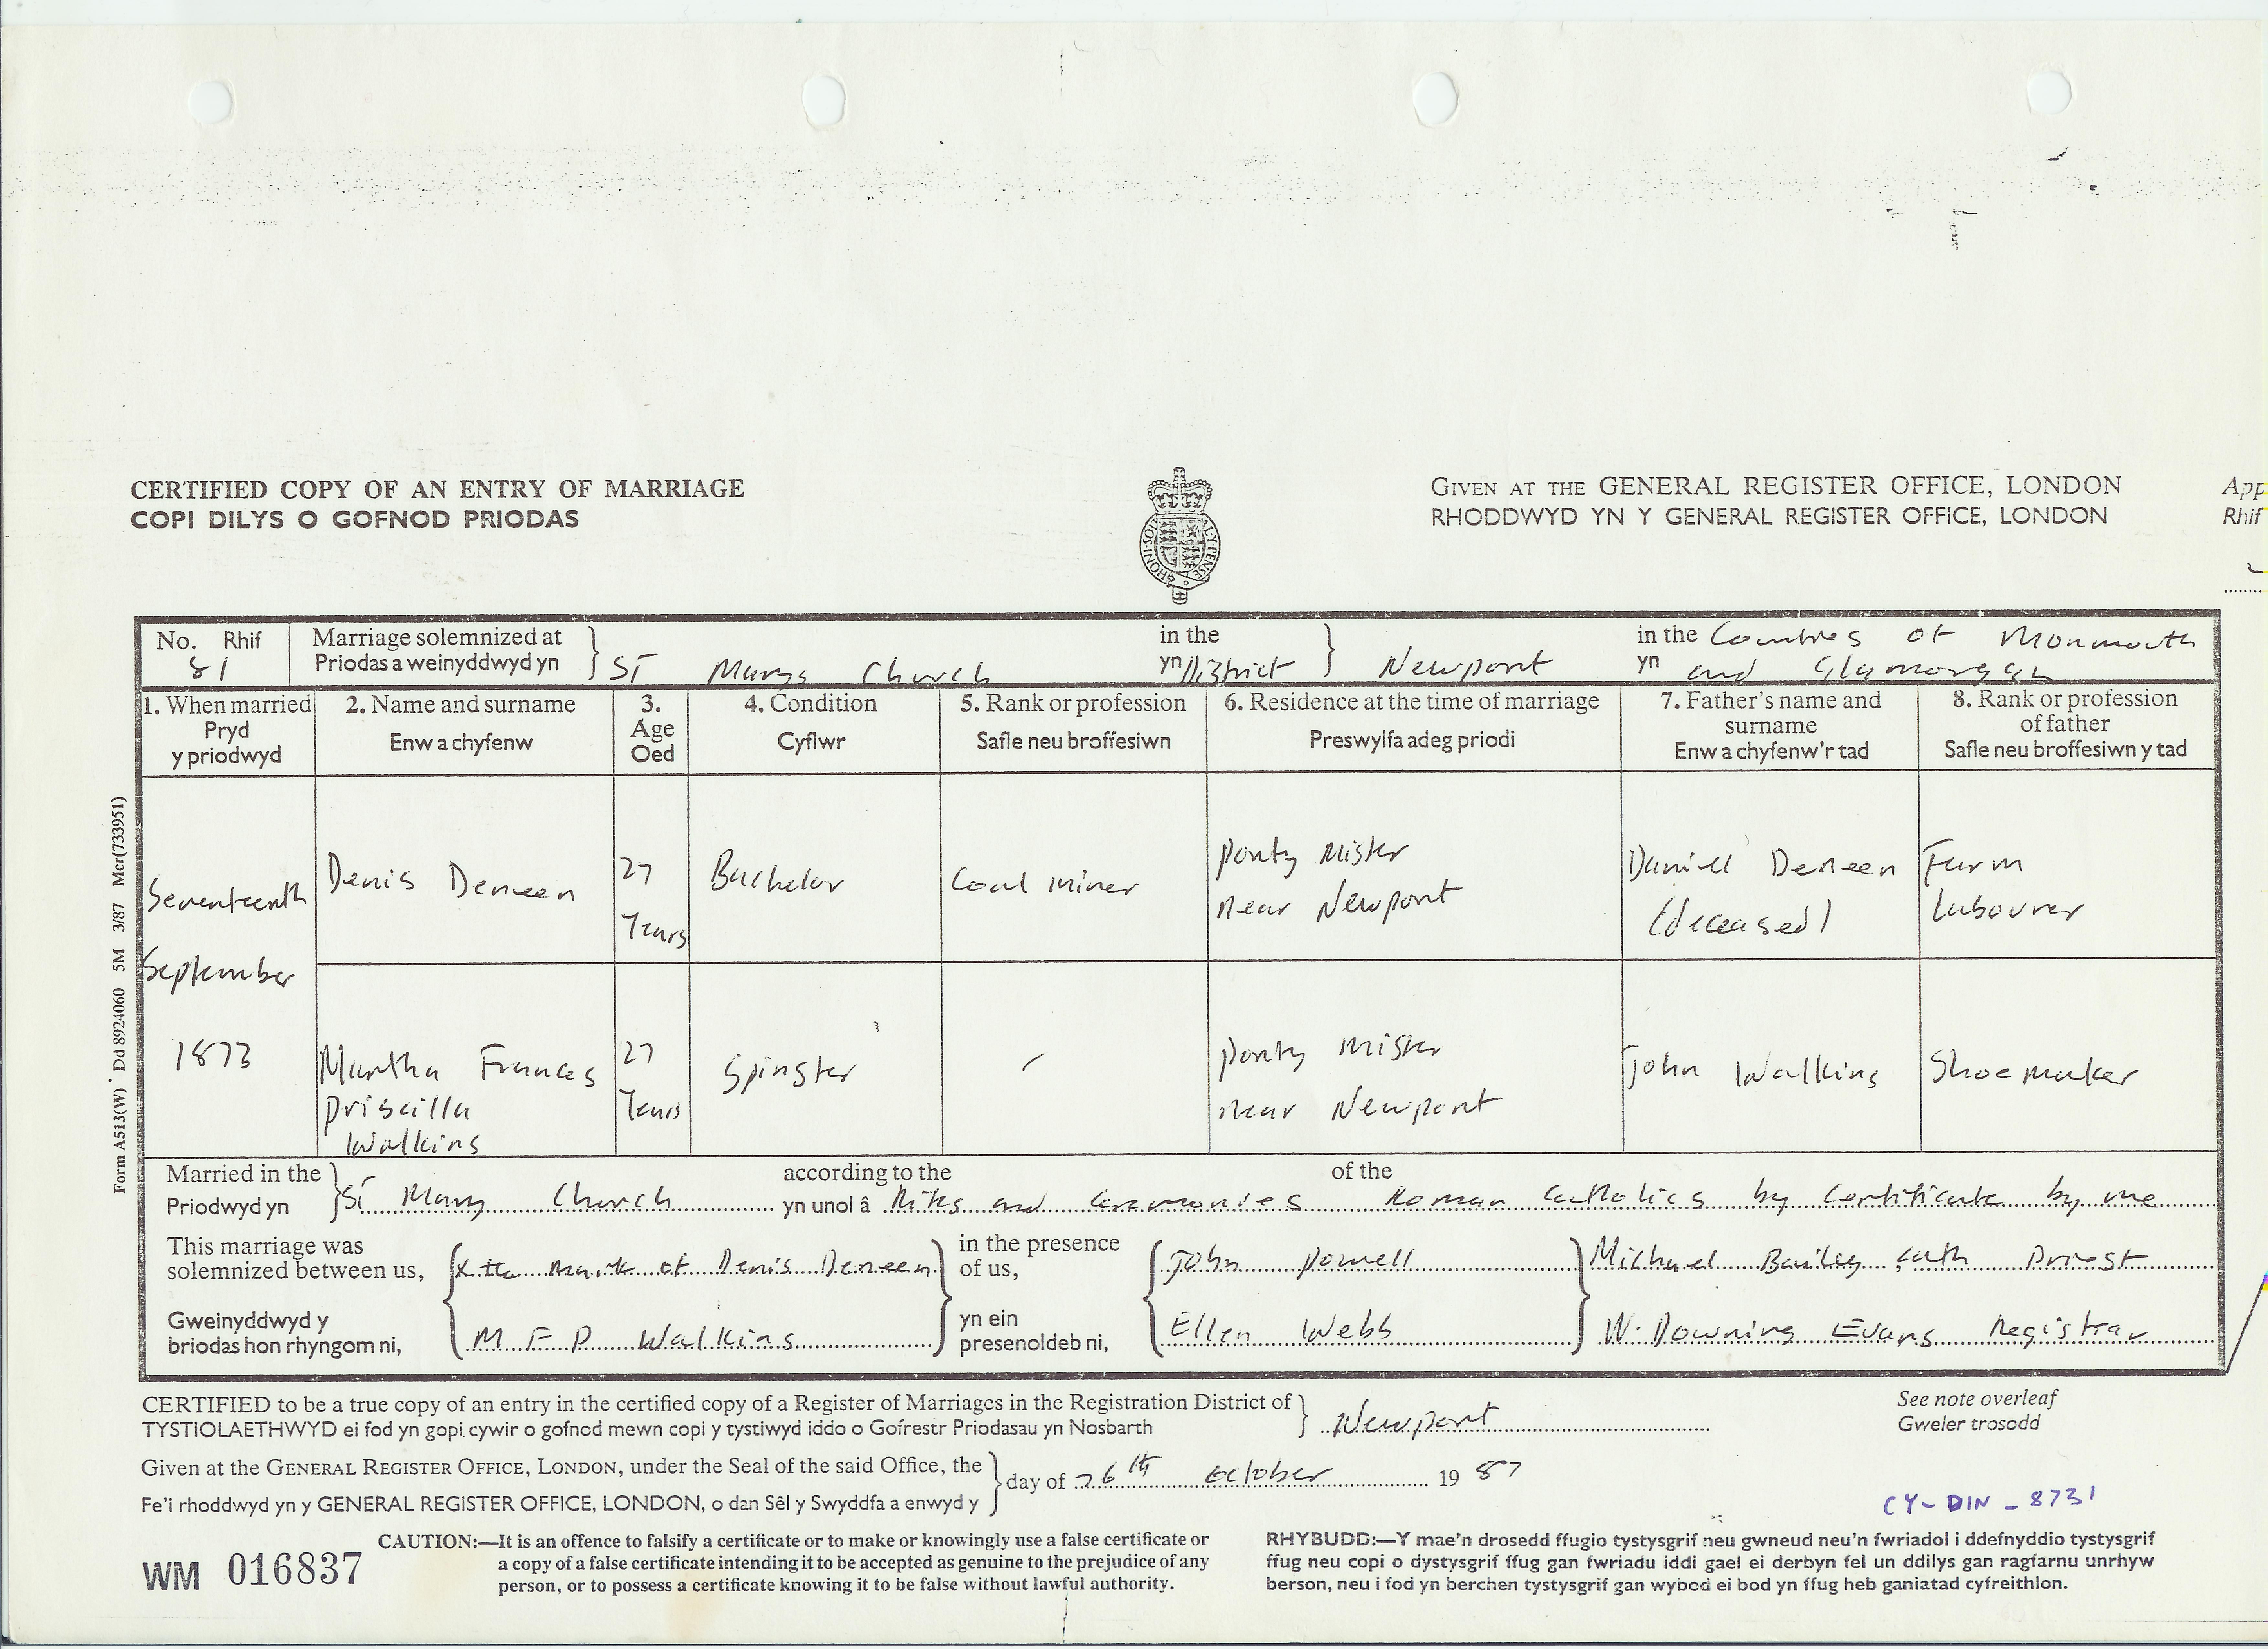 CERTIFIED COPY OF AN ENTRY OF MARRIAGE
COPI DILYS O GOFNOD PRIODAS
GIVEN AT THE GENERAL REGISTER OFFICE, LONDON
RHODDWYD YN Y GENERAL REGISTER OFFICE, LONDON
App
Rhif
HONI·SOI AL·Y·PENCE
No. Rhif
81
Marriage solemnized at
Priodas a weinyddwyd yn
St Marys Church
in the
yn District
Newport
in the Counties of Monmouth
yn and Glamorgan
1. When married
Pryd
y priodwyd
2. Name and surname
Enw a chyfenw
3.
Age
Oed
4. Condition
Cyflwr
5. Rank or profession
Safle neu broffesiwn
6. Residence at the time of marriage
Preswylfa adeg priodi
7. Father's name and
surname
Enw a chyfenw'r tad
8. Rank or profession
of father
Safle neu broffesiwn y tad
Seventeenth
September
1873
Denis Deneen
27
Years
Bachelor
Coal miner
Ponty Mister
near Newport
Daniell Deneen
(deceased)
Farm
Labourer
Martha Frances
Priscilla
Walkins
27
Years
Spinster
Ponty Mister
near Newport
John Walkins
Shoemaker
Married in the
Priodwyd yn
St Mary Church
according to the
yn unol â Rites and Ceremonies
of the
Roman Catholics by Certificate by me
This marriage was
solemnized between us,
Gweinyddwyd y
briodas hon rhyngom ni,
X the mark of Denis Deneen
M F P Walkins
in the presence
of us,
yn ein
presenoldeb ni,
John Powell
Ellen Webb
Michael Bailey Cath Priest
W. Downing Evans Registrar
CERTIFIED to be a true copy of an entry in the certified copy of a Register of Marriages in the Registration District of
TYSTIOLAETHWYD ei fod yn gopi cywir o gofnod mewn copi y tystiwyd iddo o Gofrestr Priodasau yn Nosbarth
Newport
See note overleaf
Gweler trosodd
Given at the GENERAL REGISTER OFFICE, LONDON, under the Seal of the said Office, the
Fe'i rhoddwyd yn y GENERAL REGISTER OFFICE, LONDON, o dan Sêl y Swyddfa a enwyd y
day of 26th October 1987
CY-DIN-8731
WM 016837
CAUTION:—It is an offence to falsify a certificate or to make or knowingly use a false certificate or
a copy of a false certificate intending it to be accepted as genuine to the prejudice of any
person, or to possess a certificate knowing it to be false without lawful authority.
RHYBUDD:—Y mae'n drosedd ffugio tystysgrif neu gwneud neu'n fwriadol i ddefnyddio tystysgrif
ffug neu copi o dystysgrif ffug gan fwriadu iddi gael ei derbyn fel un ddilys gan ragfarnu unrhyw
berson, neu i fod yn berchen tystysgrif gan wybod ei bod yn ffug heb ganiatad cyfreithlon.
Form A513(W) Dd 8924060 5M 3/87 Mcr(733951)